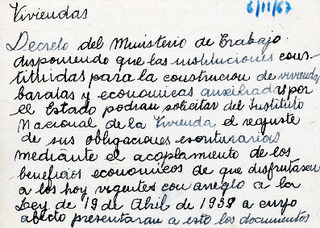 Viviendas
6/11/67
Decreto del Ministerio de Trabajo
disponiendo que las instituciones cons-
tituidas para la construcion de viviendas
baratas y economicas auxiliadas por
el Estado podran solicitar del Instituto
Nacional de la Vivienda el reajuste
de sus obligaciones escriturarias
mediante el acoplamiento de los
beneficios economicos de que disfrutasen
a los hoy vigentes con areglo a la
Ley de 19 de Abril de 1939 a cuyo
abecto presentaran a esto los documentos